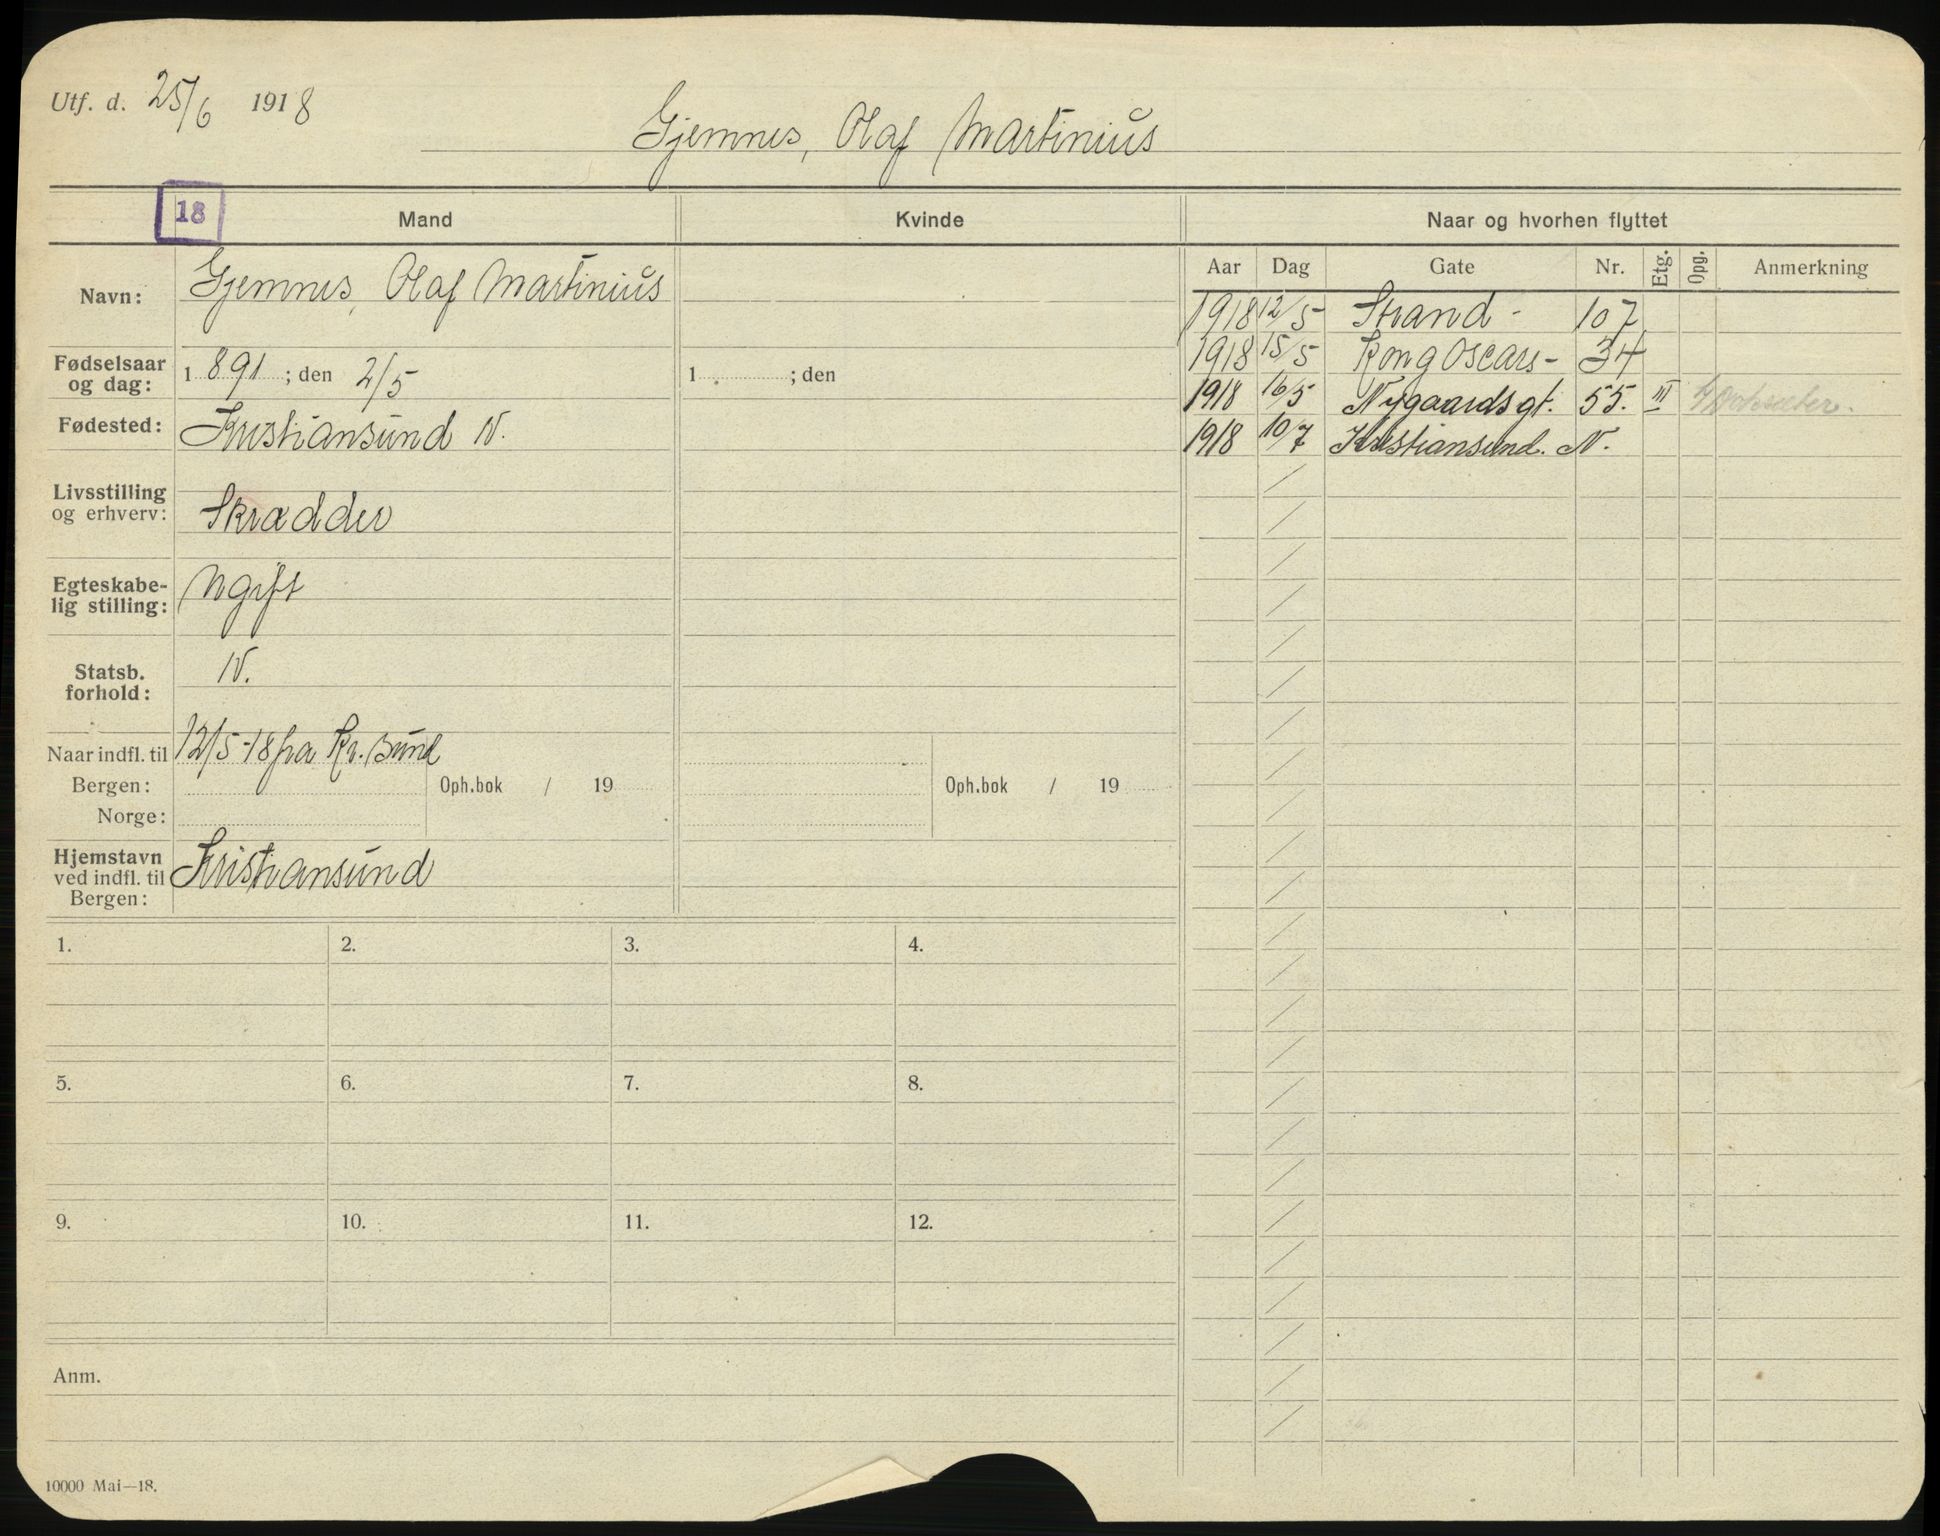 Utf. d. 25/6 1918
Gjemnes, Olaf Martinius
18 Mand Kvinde Naar og hvorhen flyttet
Navn: Gjemnes, Olaf Martinius
Fødselsaar og dag: 1891; den 2/5 1 ; den
Fødested: Kristiansund N.
Livsstilling og erhverv: Skrædder
Egteskabe-
lig stilling: Ugift
Statsb. forhold: N.
Naar indfl. til 12/5-18 fra Kr.sund
Bergen: Oph.bok / 19 Oph.bok / 19
Norge:
Hjemstavn
ved indfl. til Kristiansund
Bergen:
Aar Dag Gate Nr. Etg. Opg. Anmerkning
1918 12/5 Strand- 107
1918 15/5 Kong Oscars- 34
1918 16/5 Nygaardsgt. 55. III
1918 10/7 Kristiansund. N.
1. 2. 3. 4.
5. 6. 7. 8.
9. 10. 11. 12.
Anm.
10000 Mai—18.